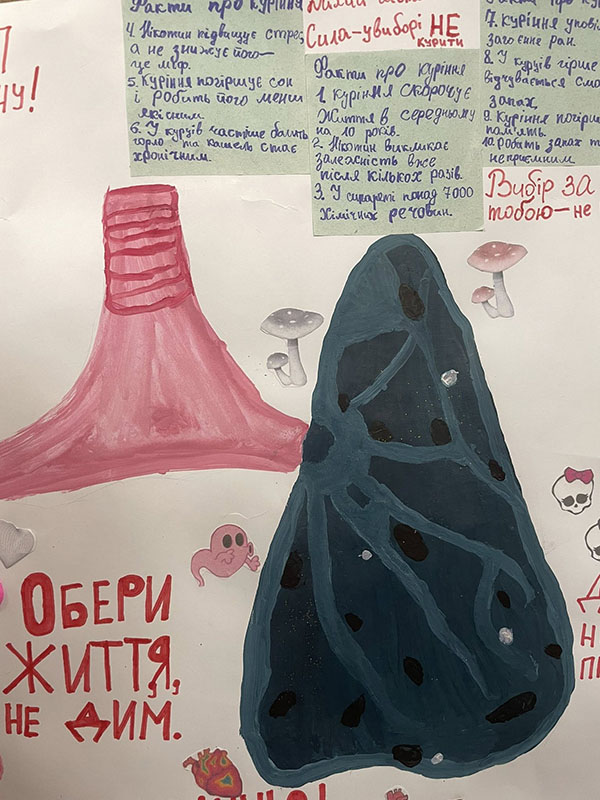 Факти про куріння
4. Нікотин підвищує стрес,
а не знижує його-
це міф.
5. Куріння погіршує сон
і робить його менш
якісним.
6. У курців частіше болить
горло та кашель стає
хронічним.
Сила-увиборі НЕ
курити
Факти про куріння
1. Куріння скорочує
життя в середньому
на 10 років.
2. Нікотин викликає
залежність вже
після кількох разів.
3. У сигареті понад 7000
хімічних речовин.
7. Куріння упові
загоєнне ран.
8. У курців гірше
відчувається сма
запах.
9. Куріння погірш
пам'ять.
10. робить запах т
неприємним
Вибір за
тобою-не
НУ!
Обери
життя,
не дим.
Д
Н